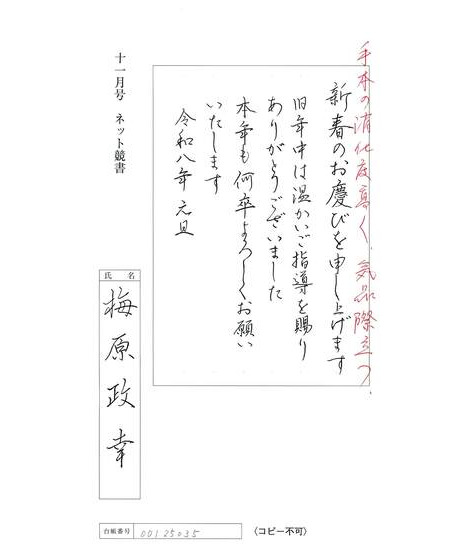 手本の消化度高く、気品際立つ。
新春のお慶びを申し上げます
旧年中は温かいご指導を賜り
ありがとうございました
本年も何卒よろしくお願い
いたします
令和八年 元旦
十一月号 ネット競書
氏名
梅原政幸
台帳番号 00125035
〈コピー不可〉